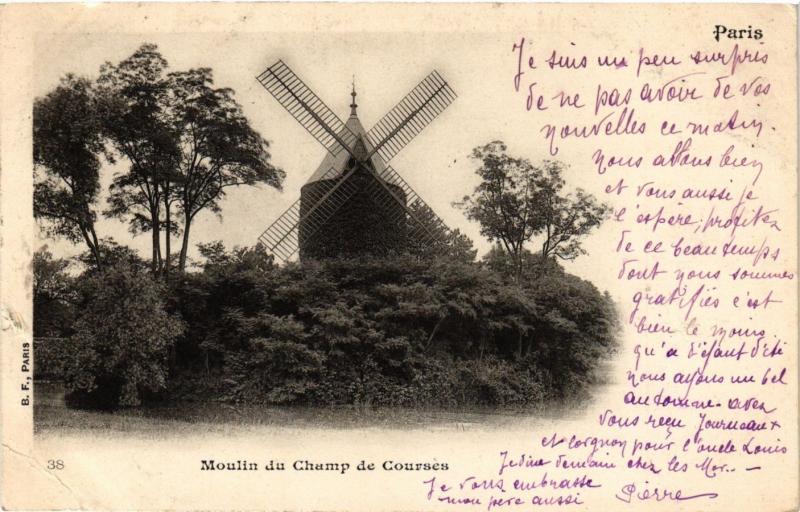 Paris
Je suis un peu surpris
de ne pas avoir de vos
nouvelles ce matin.
Nous allons bien
et vous aussi je
l'espère, profitez
de ce beau temps
dont nous sommes
gratifiés c'est
bien le moins
qu'à défaut d'été
nous ayons un bel
automne. avez
vous reçu Journeaux
et lorgnon pour l'oncle Louis
Je dîne demain chez les Mor...
Je vous embrasse
mon père aussi Pierre
B. F., PARIS
38
Moulin du Champ de Courses